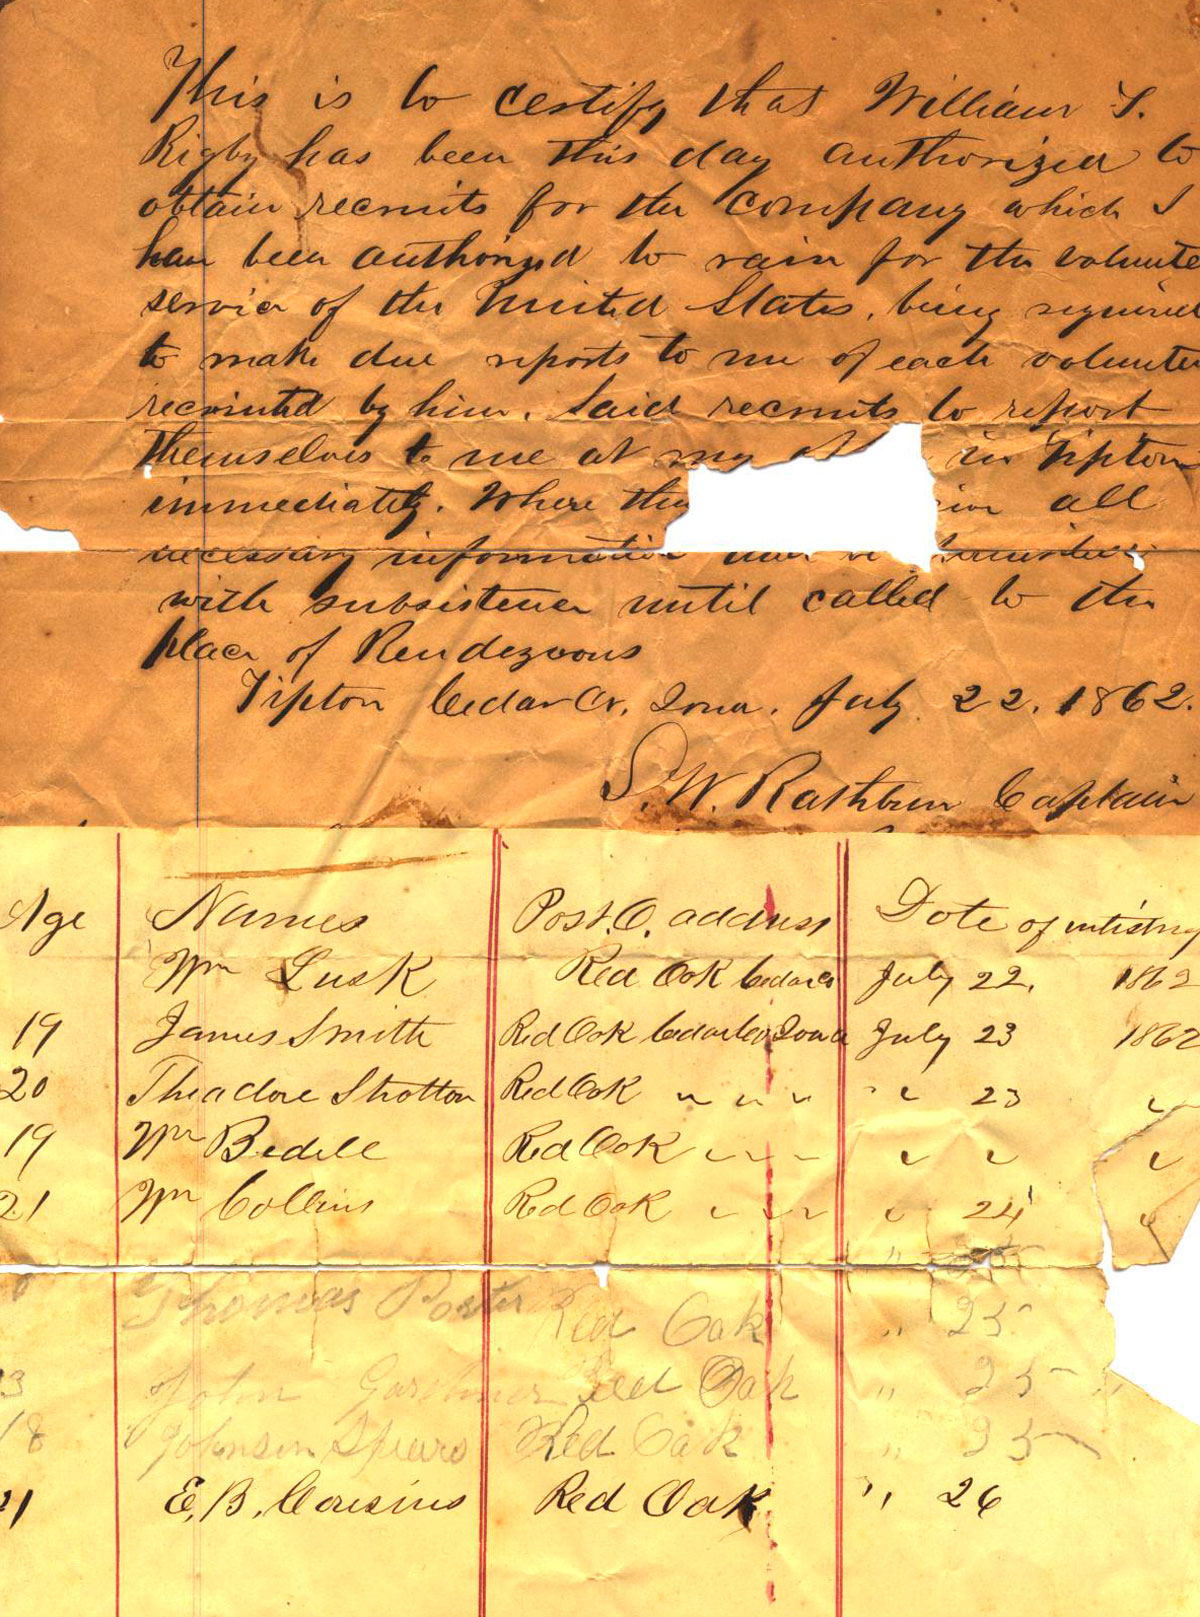 This is to certify that William T.
Rigby has been this day authorized to
obtain recruits for the company which I
have been authorized to raise for the volunte
service of the United States, being required
to make due reports to me of each volunteer
recruited by him. Said recruits to report
themselves to me at my in Tipton
immediately. Where they all
necessary information and be
with subsistence until called to the
place of Rendezvous
Tipton Cedar Co. Iowa. July 22. 1862.
S. W. Rathbun Captain
Age Names Post. O. address Date of
Wm Lusk Red Oak Cedar Co July 22, 1862
19 James Smith Red Oak Cedar Co Iowa July 23 1862
20 Theadore Strotton Red Oak " " " " " 23 "
19 Wm Bedell Red Oak " " " " " "
21 Wm Collins Red Oak " " " " 24 "
Thomas Porter Red Oak " 25
3 John Gardiner Red Oak " 25 "
18 Johnson Spears Red Oak " 25
21 E. B. Cousins Red Oak " 26